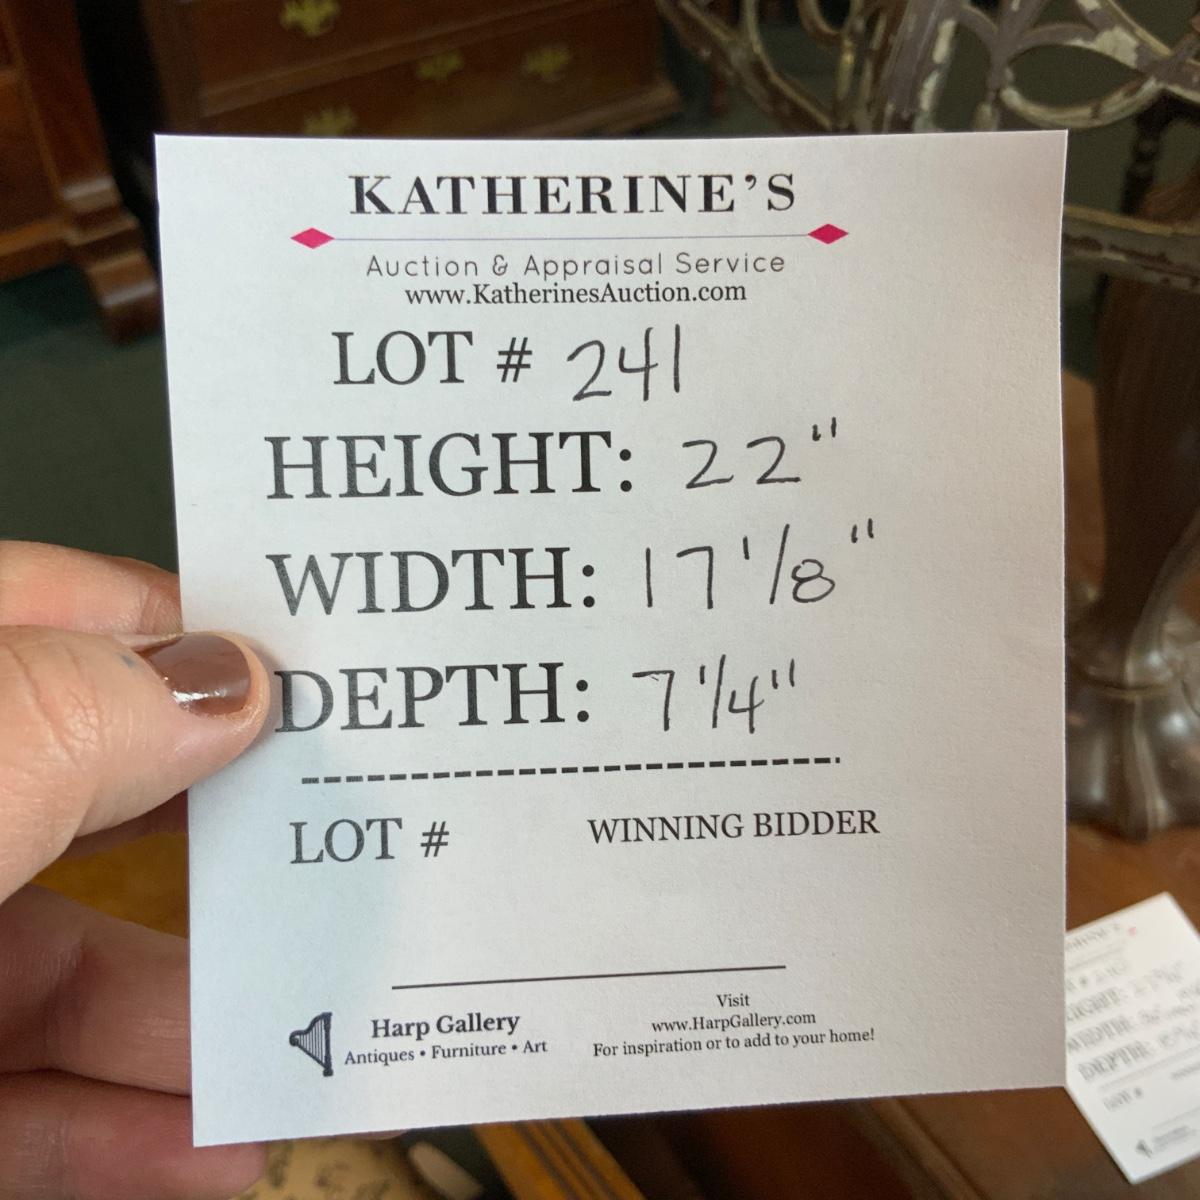 KATHERINE'S
Auction & Appraisal Service
www.KatherinesAuction.com
LOT # 241
HEIGHT: 22"
WIDTH: 17 1/8"
DEPTH: 7 1/4"
LOT # WINNING BIDDER
Harp Gallery
Antiques • Furniture • Art
Visit
www.HarpGallery.com
For inspiration or to add to your home!
HEIGHT:
WIDTH:
DEPTH:
LOT #